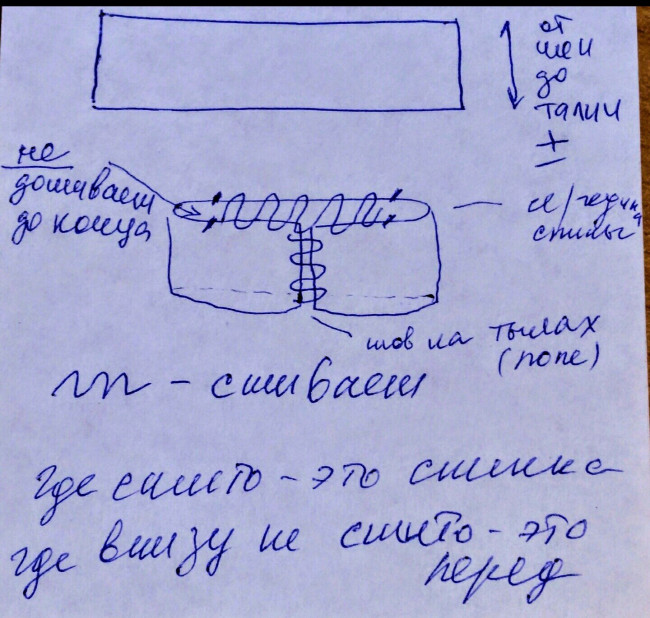 от
шеи
до
талии
+
–
не
дошиваем
до конца
середина
спины
шов на тылах
(попе)
– сшиваем
где сшито – это спинка
где внизу не сшито – это
перед